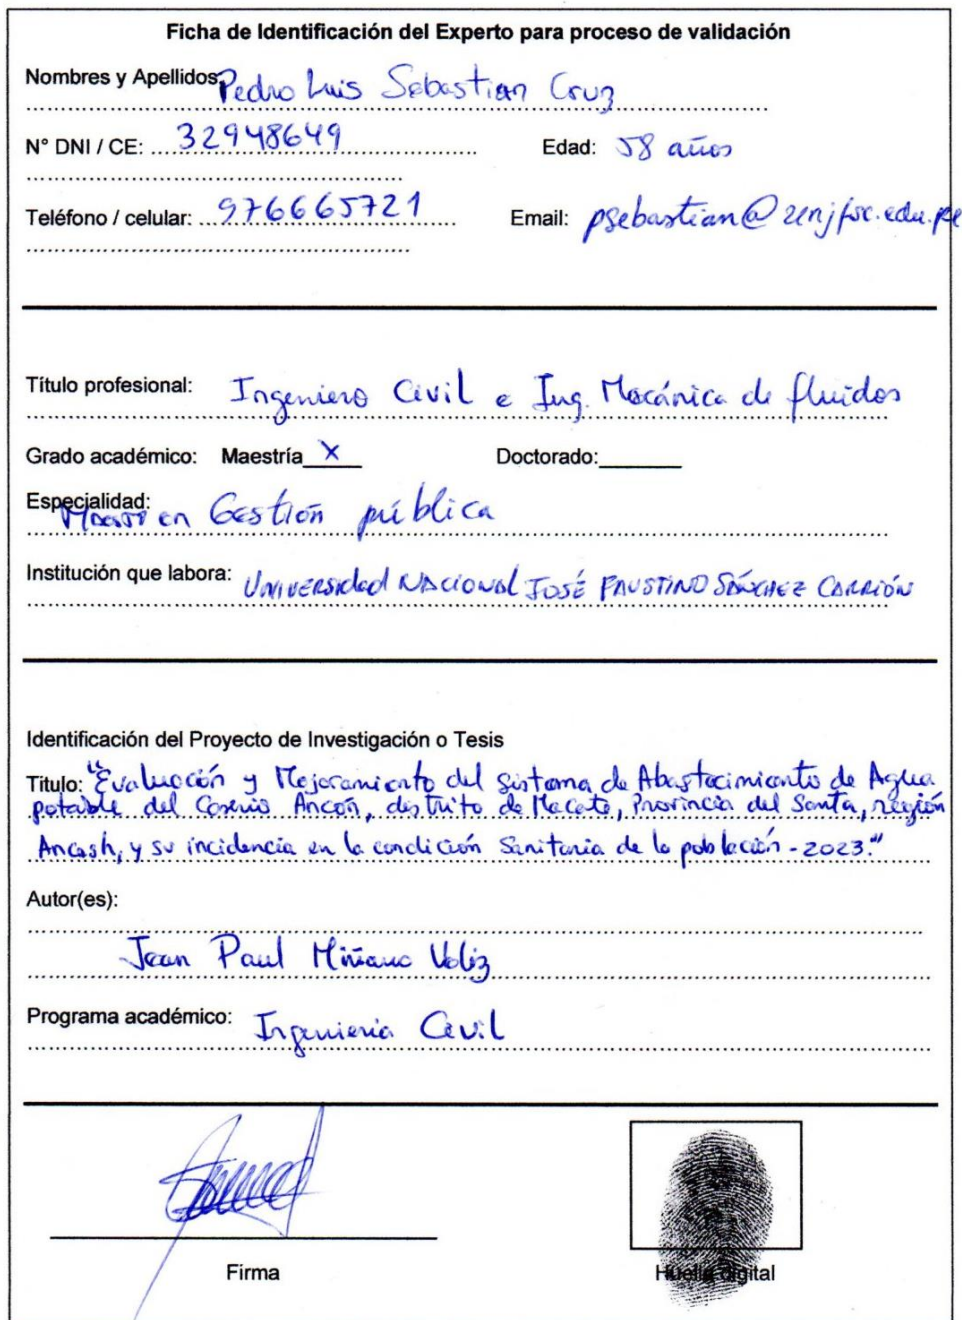 Ficha de Identificación del Experto para proceso de validación
Nombres y Apellidos: Pedro Luis Sebastian Cruz
N° DNI / CE: 32948649 Edad: 58 años
Teléfono / celular: 976665721 Email: psebastian@unjfsc.edu.pe
Título profesional: Ingeniero Civil e Ing. Mecánica de fluidos
Grado académico: Maestría X Doctorado:
Especialidad:
en Gestión pública
Institución que labora: UNIVERSIDAD NACIONAL JOSÉ FAUSTINO SÁNCHEZ CARRIÓN
Identificación del Proyecto de Investigación o Tesis
Titulo: "Evaluación y Mejoramiento del Sistema de Abastecimiento de Agua
potable del Caserio Ancón, distrito de Macate, Provincia del Santa, región
Ancash, y su incidencia en la condición Sanitaria de la población - 2023."
Autor(es):
Jean Paul Miñano Veliz
Programa académico: Ingenieria Civil
Firma
Huella digital